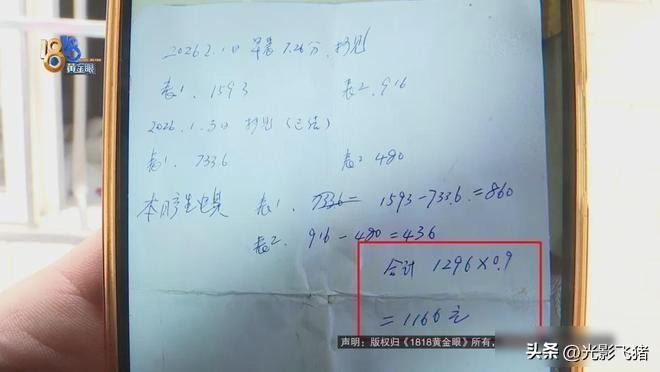 1818
黄金眼
2026 2.1日 早晨 7.26分. 抄见
表1. 1593 表2. 916
2026.1.3日 抄见 (已结)
表1. 733.6 表2 480
本月产生电费 表1. 1593-733.6=860
表2. 916-480=436
合计 1296×0.9
=1166元
声明:版权归《1818黄金眼》所有,
头条 @光影飞猪